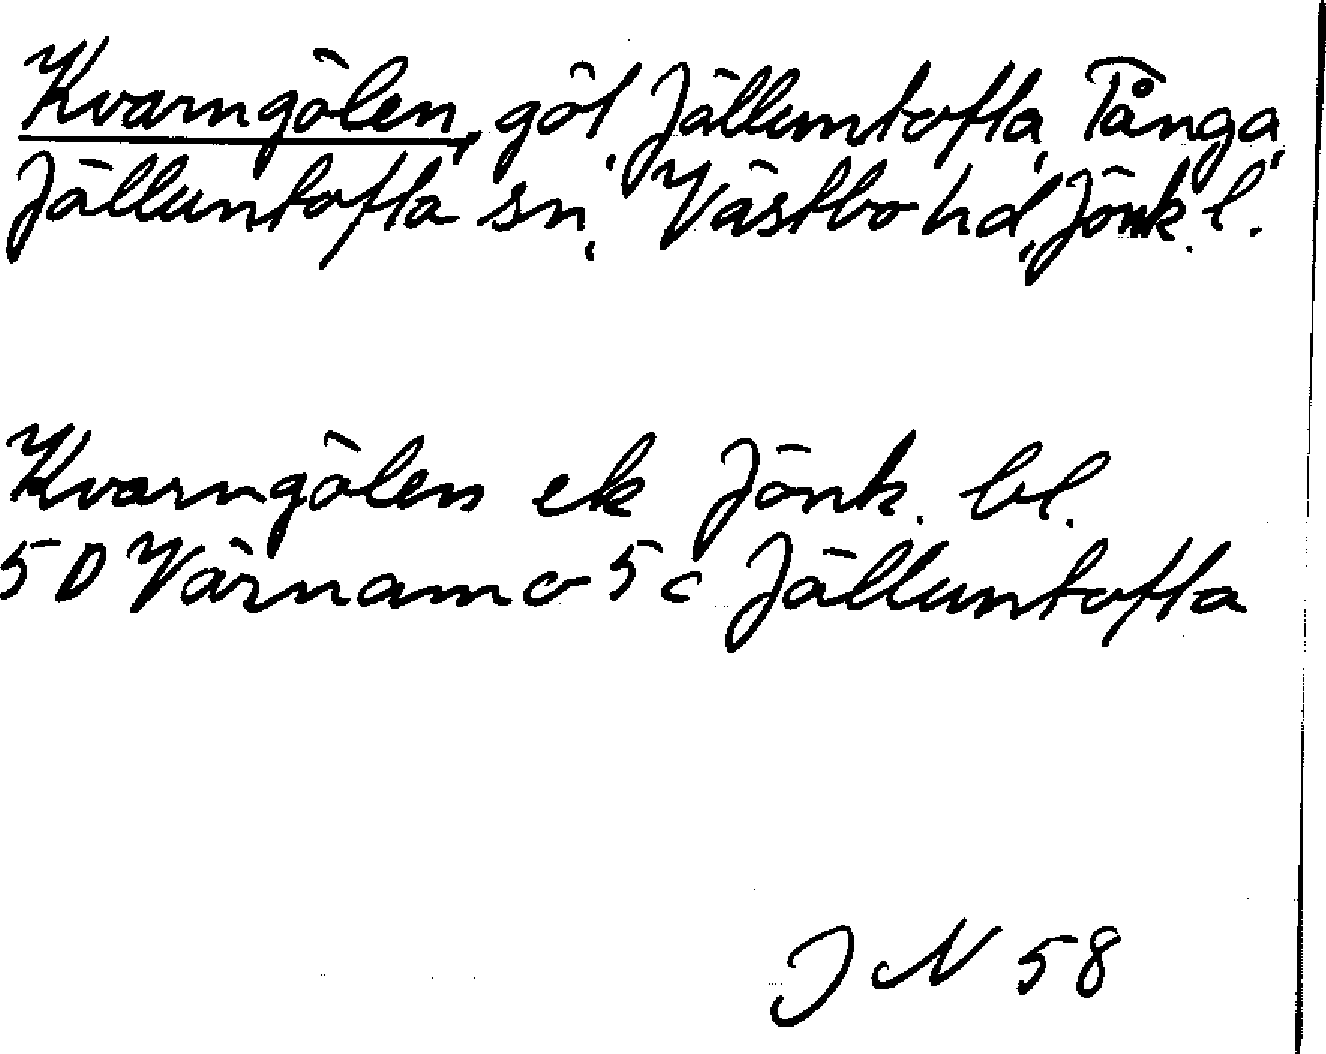 Kvarngölen, göl, Jälluntofta, Tånga,
Jälluntofta sn, Västbo hd, Jönk. l.
Kvarngölen ek Jönk. bl.
5 D Värnamo 5 c Jälluntofta
J N 58